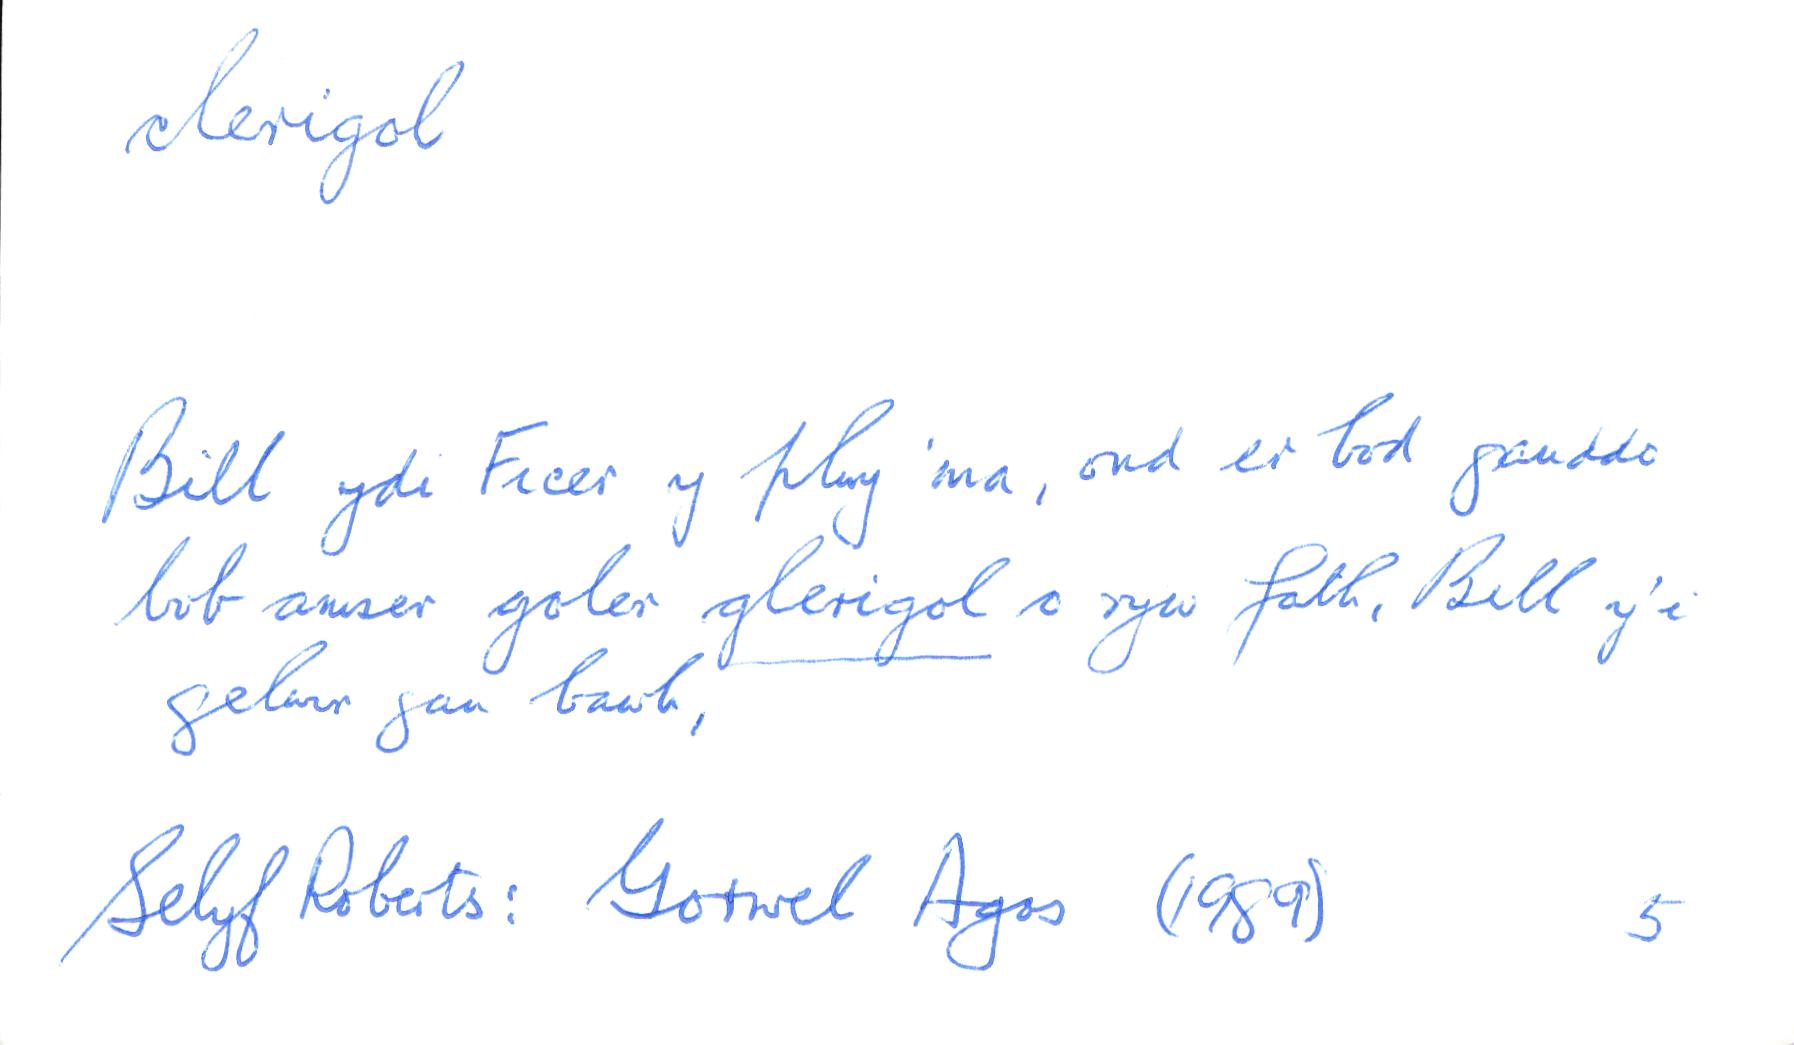 clerigol
Bill ydi Ficer y plwy 'ma, ond er bod ganddo
bob amser goler glerigol o ryw fath, Bill y'i
gelwir gan bawb,
Selyf Roberts: Gorwel Agos (1989) 5